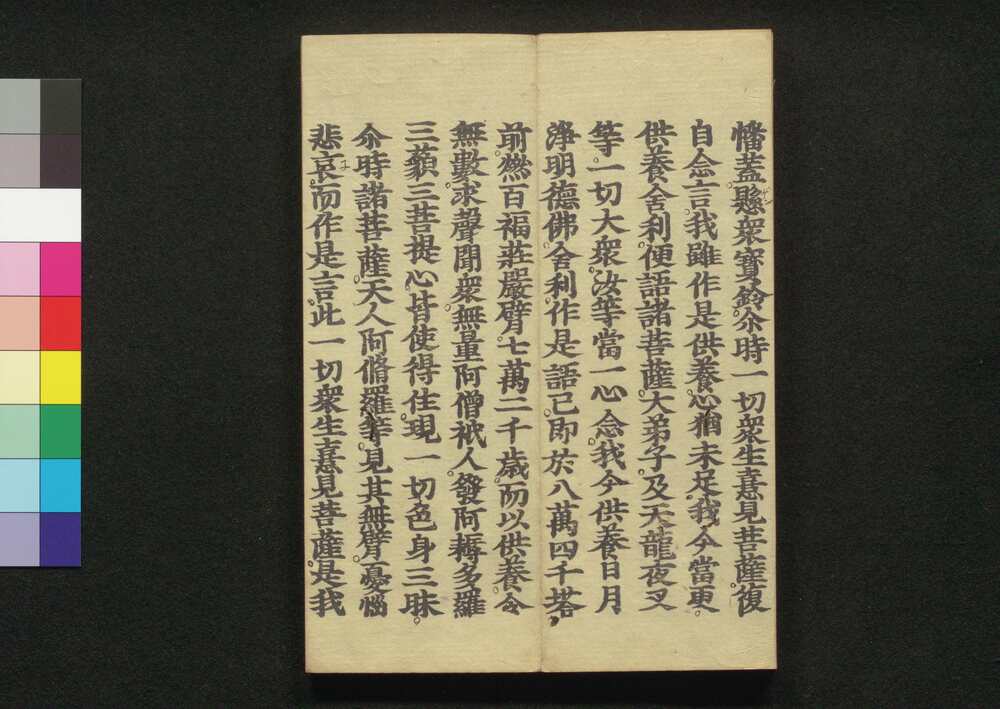 幡蓋懸衆寶鈴尒時一切衆生憙見菩薩復
自念言我雖作是供養心猶未足我今當更
供養舍利便語諸菩薩大弟子及天龍夜叉
等一切大衆汝等當一心念我今供養日月
淨明德佛舍利作是語已即於八萬四千塔
前燃百福莊嚴臂七萬二千歲而以供養令
無數求聲聞衆無量阿僧祇人發阿耨多羅
三藐三菩提心皆使得住現一切色身三昧
尒時諸菩薩天人阿脩羅等見其無臂憂惱
悲哀而作是言此一切衆生憙見菩薩是我